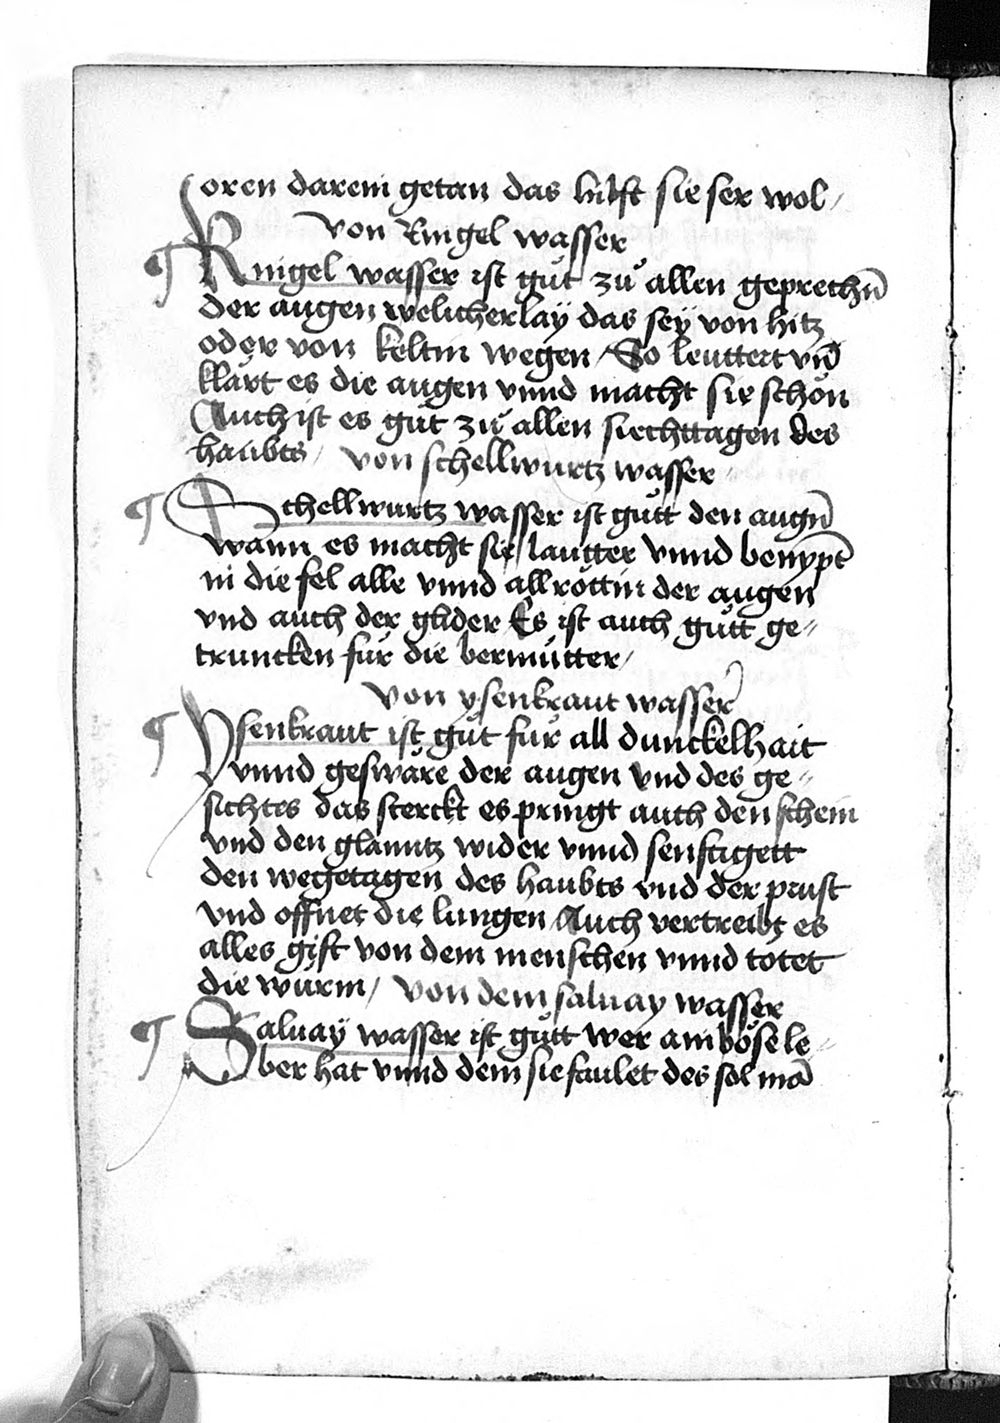 oren darein getan das hilft sie ser wol /
Von Ringel wasser
¶ Ringel wasser ist gůt zů allen geprechn̄
der augen welicherlaÿ das seÿ von hitz
oder von keltin wegen / So leuttert vn̄
klärt es die augen vnnd macht sie schön
Auch ist es gůt zů allen siechttagen des
haubts / Von schellwurtz wasser
¶ Schellwurtz wasser ist gůtt den augn̄
wann es macht sie lautter vnnd benypt
in die fel alle vnnd all röttin der augen
vnd auch der glider Es ist auch gůtt ge=
truncken für die bermůtter /
Von ysenkraut wasser
¶ Ysenkraut ist gůt für all dunckelhait
vnnd geswäre der augen vnd des ge=
sichtes das sterckt es pringt auch den schein
vnd den glanntz wider vnnd senftigett
den wegetagen des haubts vnd der prust
vnd offnet die lungen Auch vertreibt es
alles gift von dem menschen vnnd totet
die würm / Von dem saluay wasser
¶ Saluaÿ wasser ist gůtt wer ain böse le=
ber hat vnnd dem sie faulet des sol mā